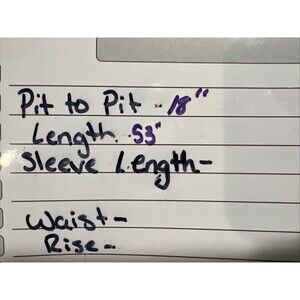 Pit to Pit - 18"
Length - 53"
Sleeve Length -
Waist -
Rise -